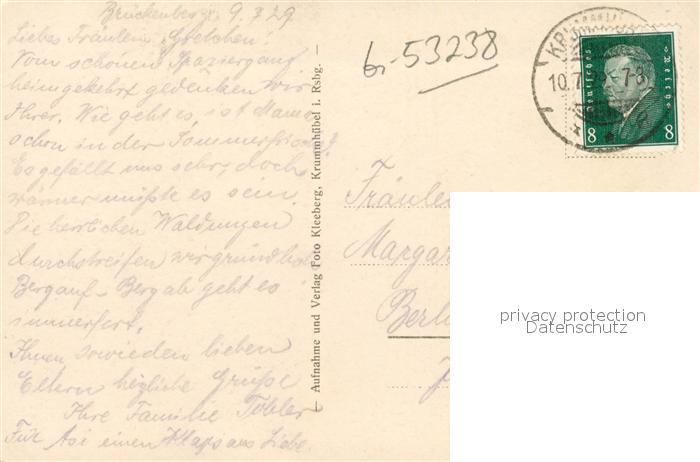 Brückenberg 9.7.29
Liebes Fräulein Gretchen!
Vom schönen Spaziergang
heimgekehrt gedenken wir
Ihrer. Wie geht es, ist Mama
schon in der Sommerfrische?
Es gefällt uns sehr, doch
wärmer müßte es sein.
Die herrlichen Waldungen
durchstreifen wir gründlich
Bergauf - Bergab geht es
immerfort.
Ihnen sowie den lieben
Eltern herzliche Grüße
Ihre Familie Töbler
Für Asi einen Klaps aus Liebe.
Aufnahme und Verlag Foto Kleeberg, Krummhübel i. Rsbg.
br-53238
10.7. 7-8
Deutsches Reich
8 8
Fräulein
Margar
Berli
privacy protection
Datenschutz